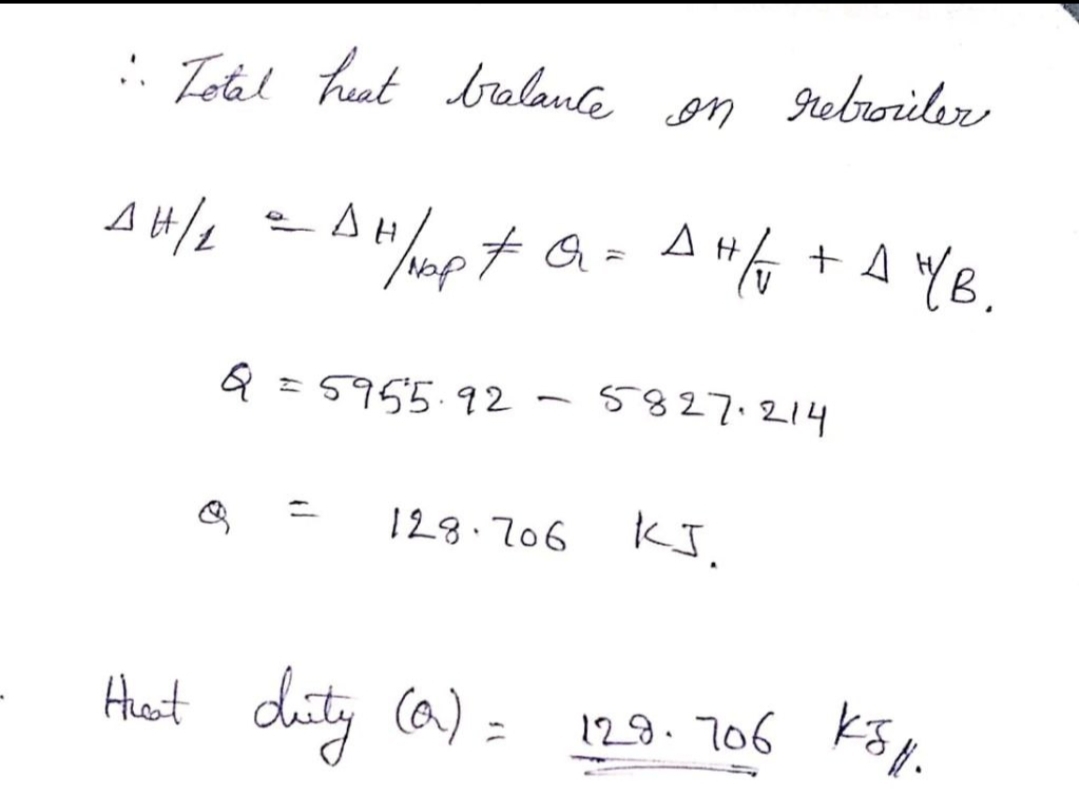 ∴ Total heat balance on reboiler
ΔH/L = ΔH/Nap + Q = ΔH/V̅ + ΔH/B.
Q = 5955.92 - 5827.214
Q = 128.706 KJ.
Heat duty (Q) = 128.706 KJ//.